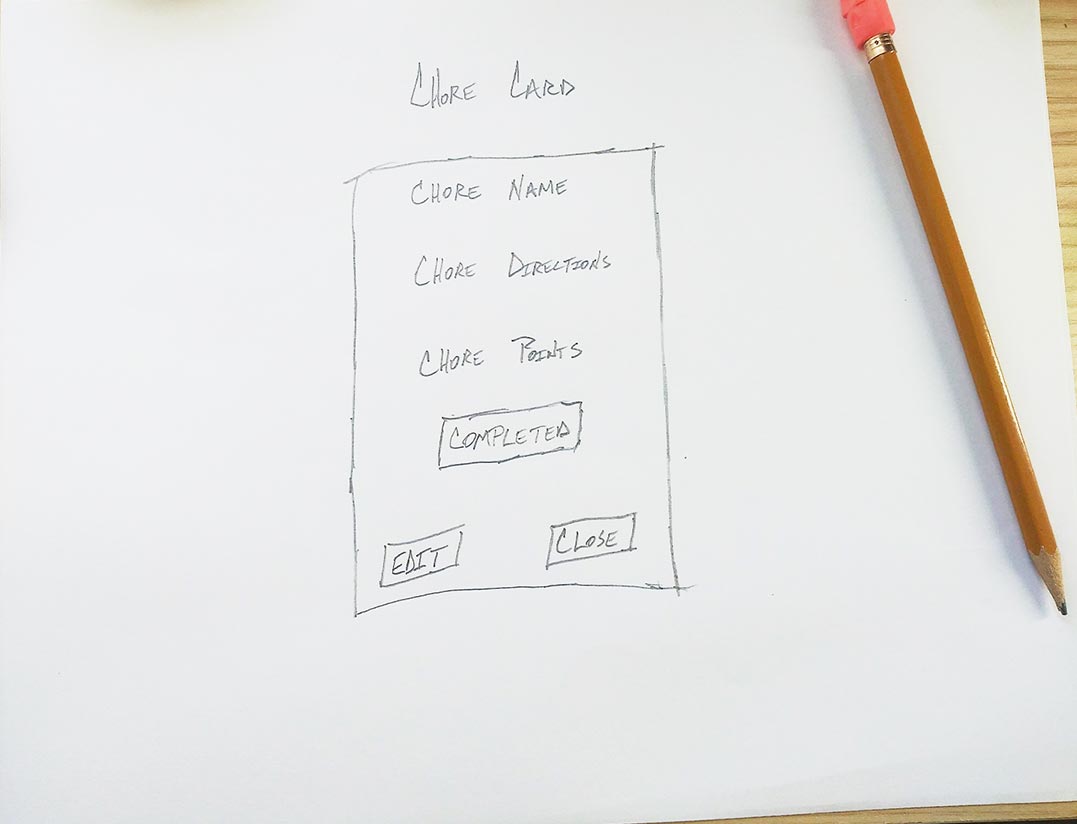 CHORE CARD
CHORE NAME
CHORE DIRECTIONS
CHORE POINTS
COMPLETED
EDIT CLOSE